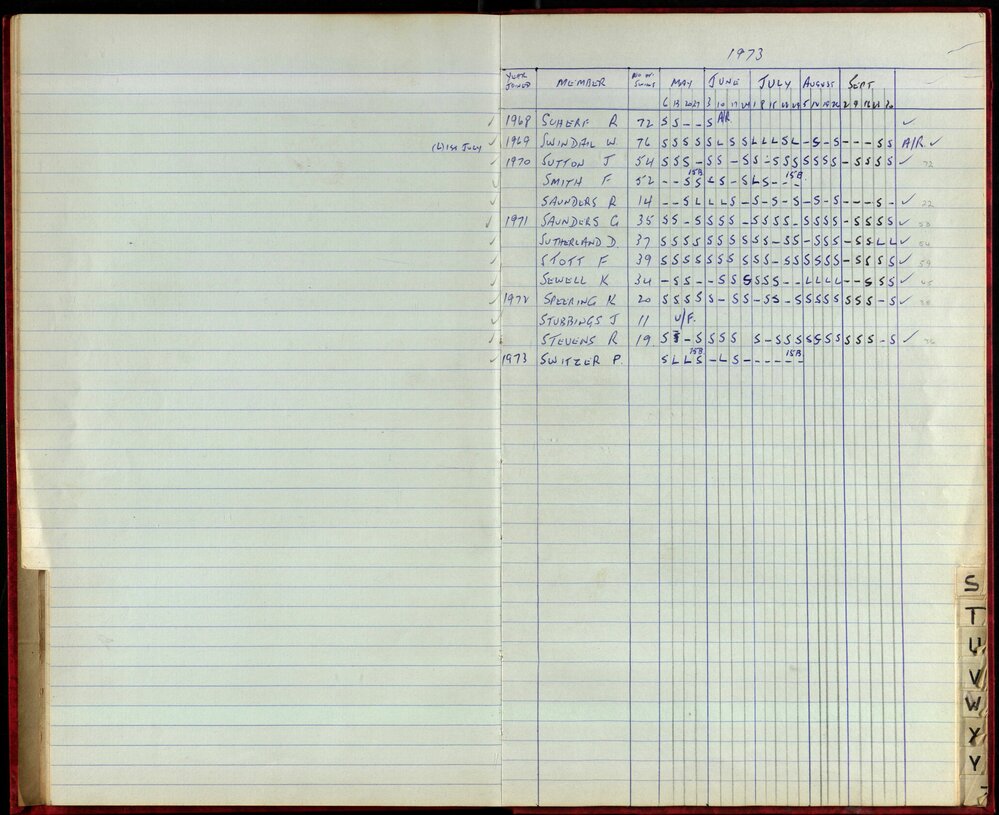 1973
YEAR JOINED MEMBER NO OF SWIMS MAY JUNE JULY AUGUST SEPT
6 13 20 27 3 10 17 24 1 8 15 22 29 5 12 19 26 2 9 16 23 30
✓ 1968 SCHERF R 72 S S - - S A/R ✓
(L) 1st July ✓ 1969 SWINDAIL W. 76 S S S S S L S S L L L S L - S - S - - - S S A/R. ✓
✓ 1970 SUTTON J 54 S S S - S S - S S - S S S S S S S - S S S S ✓ 72
✓ SMITH F 52 - - S S 15B L S - S L S - - - 15B
✓ SAUNDERS R 14 - - S L L L S - S - S - S - S - S - - - S - ✓ 22
✓ 1971 SAUNDERS G 35 S S - S S S S - S S S S - S S S S - S S S S ✓
✓ SUTHERLAND D. 37 S S S S S S S S S S - S S - S S S - S S L L ✓
✓ STOTT F 39 S S S S S S S S S S - S S S S S S - S S S S ✓ 59
✓ SEWELL K 34 - S S - - S S S S S S - - L L L L - - S S S ✓
✓ 1972 SPEERING K 20 S S S S S - S S - S S - S S S S S S S S - S ✓
✓ STUBBINGS J 11 U/F.
✓ STEVENS R 19. S S - S S S S S - S S S S S S S S S S - S ✓
✓ 1973 SWITZER P. S L L S 15B - L S - - - - - - 15B
S
T
U
V
W
X
Y